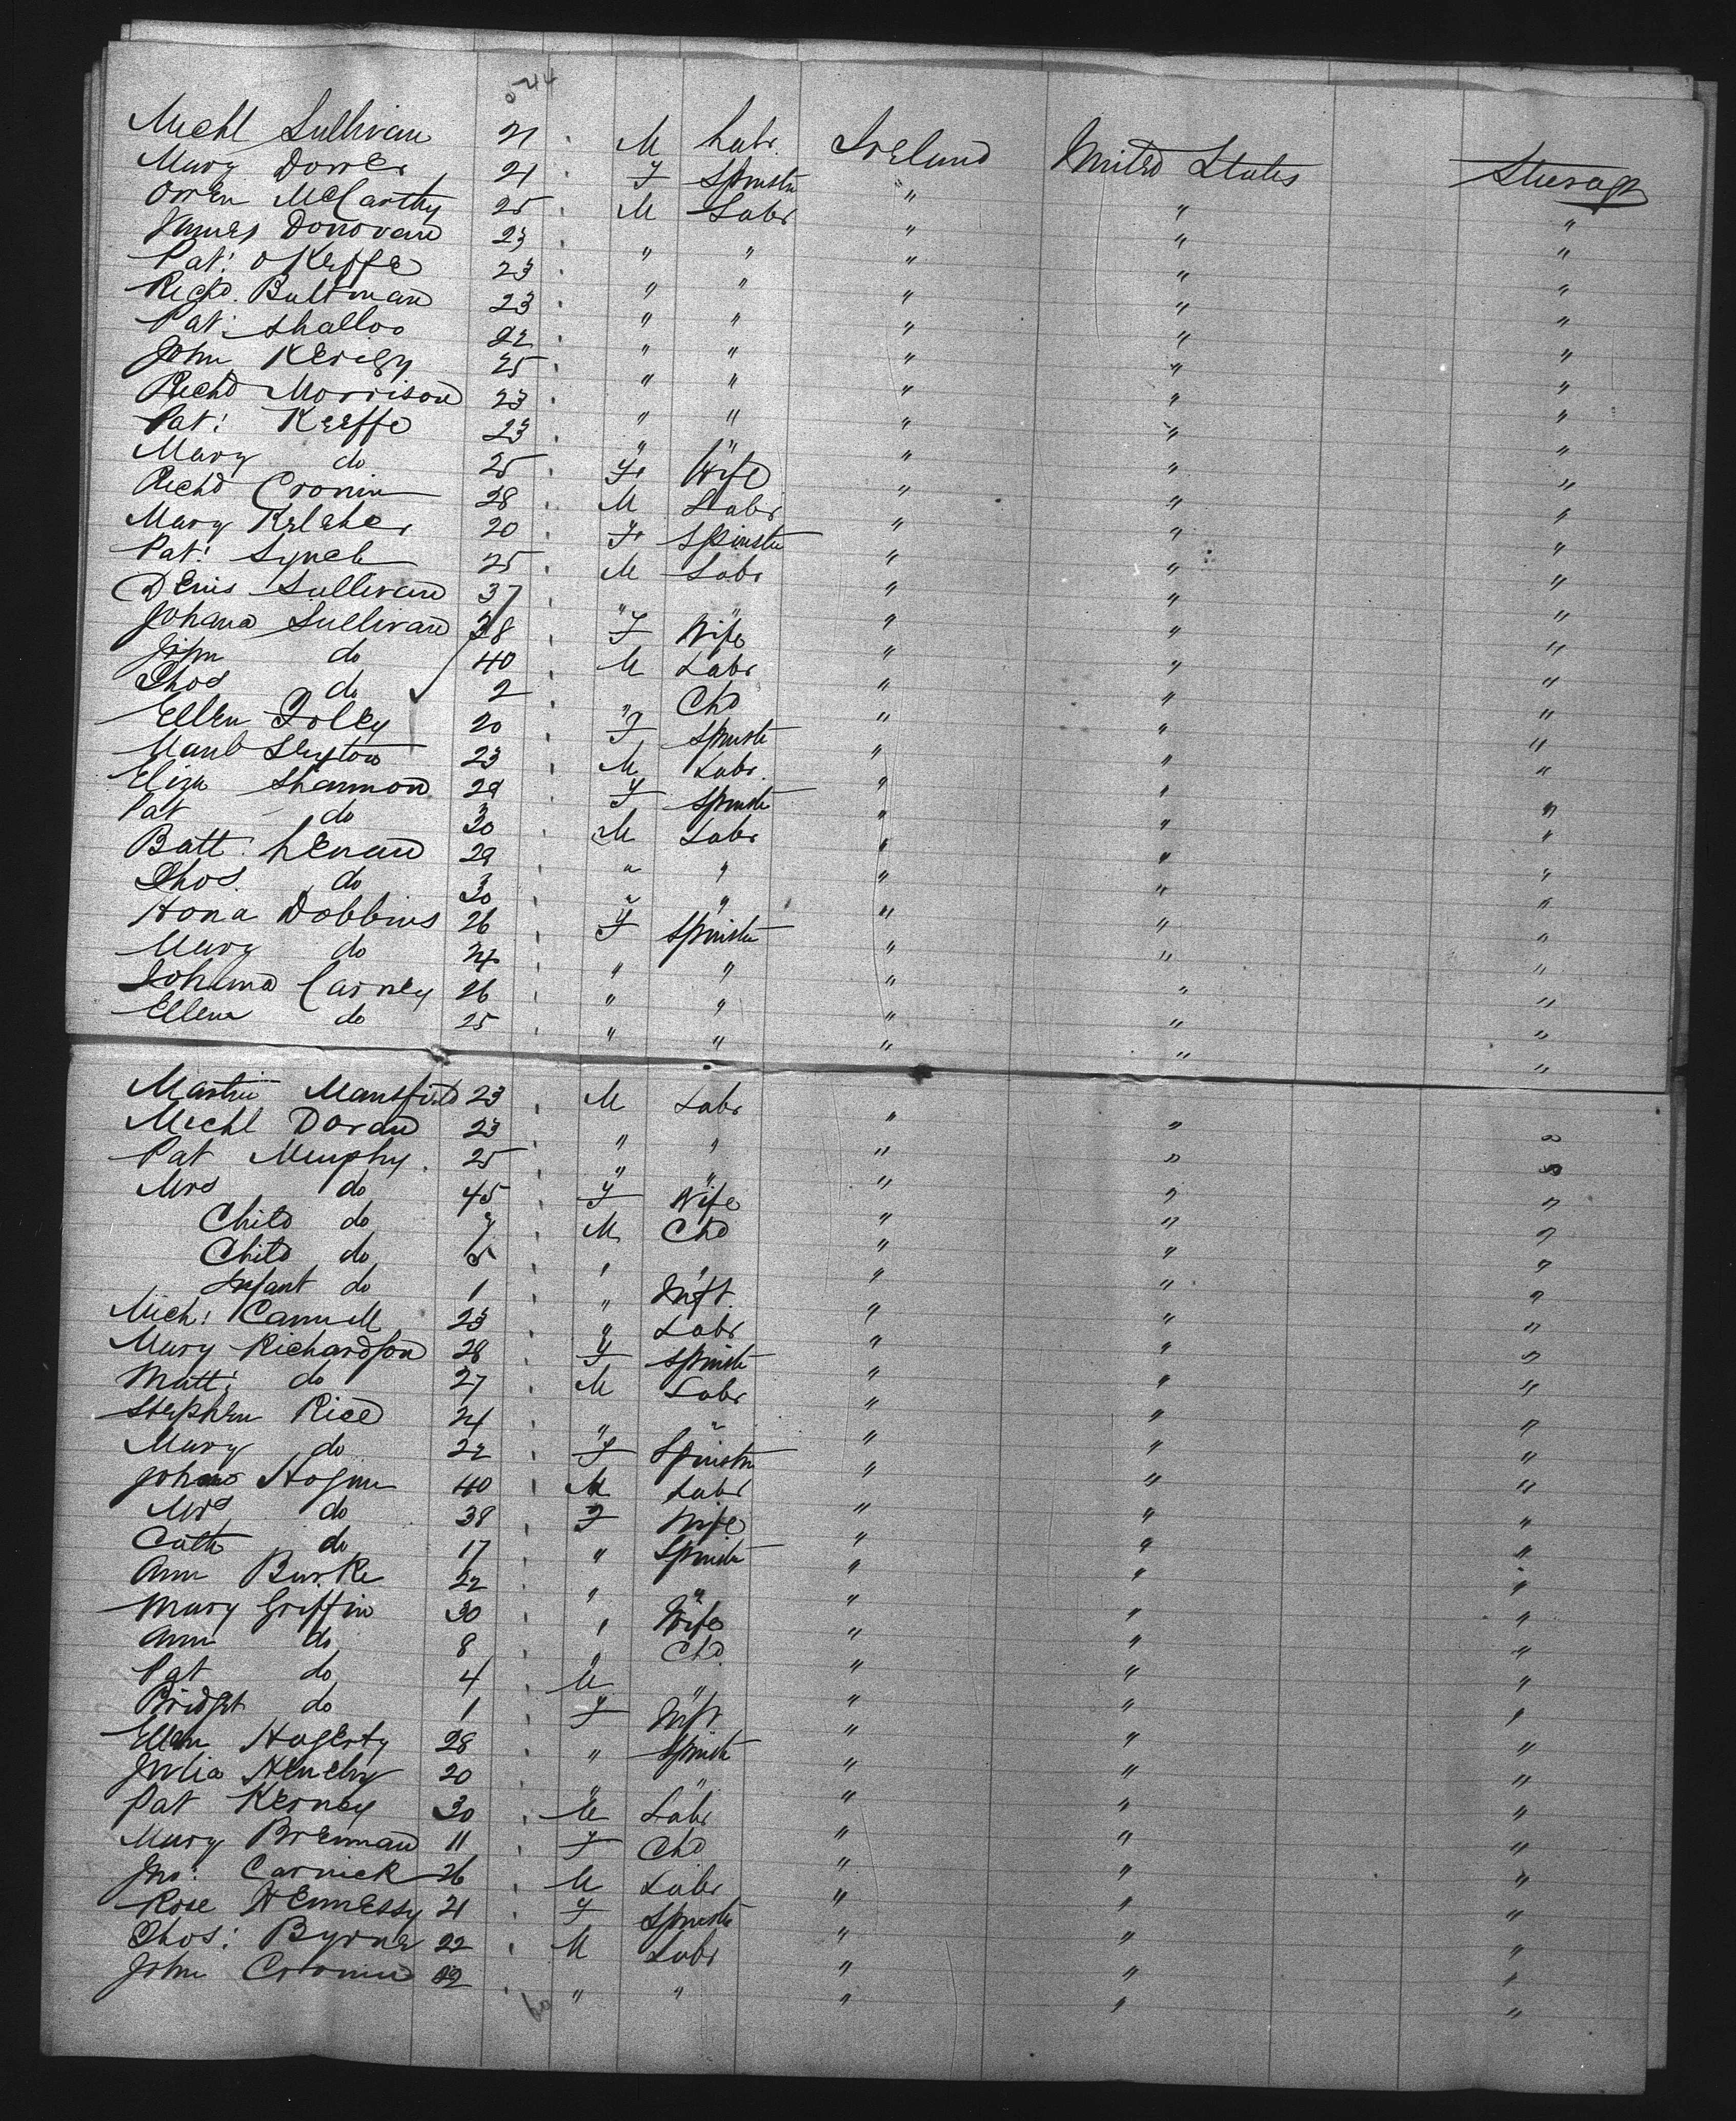 544
Michl Sullivan 21 M Labr Ireland United States Steerage
Mary Dower 21 F Spinster " " "
Owen McCarthy 25 M Labr " " "
James Donovan 23 " " " " "
Pat: O Keeffe 23 " " " " "
Richd. Bultman 23 " " " " "
Pat: Shalloo 22 " " " " "
John Kerigy 25 " " " " "
Richd Morrison 23 " " " " "
Pat: Keeffe 23 " " " " "
Mary do 25 F Wife " " "
Richd Cronin 28 M Labr " " "
Mary Keleher 20 F Spinster " " "
Pat: Lynch 25 M Labr " " "
Denis Sullivan 37 " " " " "
Johana Sullivan 38 F Wife " " "
John do 40 M Labr " " "
Thos do 2 " Chd " " "
Ellen Foley 20 F Spinster " " "
23 M Labr " " "
Eliza Shannon 29 F Spinster " " "
Pat do 30 M Labr " " "
Batt: Lenan 29 " " " " "
Thos. do 30 " " " " "
Hona Dobbins 26 F Spinster " " "
Mary do 24 " " " " "
Johana Carney 26 " " " " "
Ellen do 25 " " " " "
Martin Mansfield 23 M Labr " " "
Michl Doran 23 " " " " "
Pat Murphy 25 " " " " "
Mrs do 45 F Wife " " "
Child do 7 M Chd " " "
Child do 5 " " " " "
Infant do 1 " Inft. " " "
Mich: Cannell 23 " Labr " " "
Mary Richardson 28 F Spinster " " "
Matt: do 27 M Labr " " "
Stephen Rice 24 " " " " "
Mary do 22 F Spinster " " "
John Hogan 40 M Labr " " "
Mrs do 38 F Wife " " "
Cath do 17 " Spinster " " "
Ann Burke 22 " " " " "
Mary Griffin 30 " Wife " " "
Ann do 8 " Chd " " "
Pat do 4 M " " " "
Bridget do 1 F Inft " " "
Ellen Hagerty 28 " Spinster " " "
Julia Henehy 20 " " " " "
Pat Kerney 30 M Labr " " "
Mary Brennan 11 F Chd " " "
Jno: Carrick 26 M Labr " " "
Rose Hennessy 21 F Spinster " " "
Thos: Byrne 22 M Labr " " "
John Cronin 22 " " " " "
60